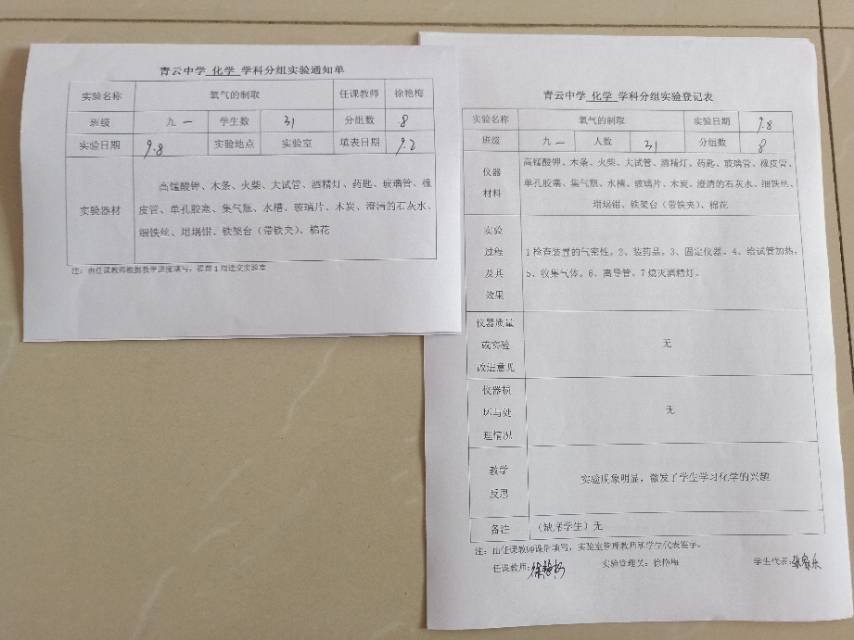 青云中学 化学 学科分组实验通知单
实验名称 氧气的制取 任课教师 徐艳梅
班级 九一 学生数 31 分组数 8
实验日期 9.8 实验地点 实验室 填表日期 9.2
实验器材
高锰酸钾、木条、火柴、大试管、酒精灯、药匙、玻璃管、橡
皮管、单孔胶塞、集气瓶、水槽、玻璃片、木炭、澄清的石灰水、
细铁丝、坩埚钳、铁架台（带铁夹）、棉花
注：由任课教师根据教学进度填写，提前1周送交实验室
青云中学 化学 学科分组实验登记表
实验名称 氧气的制取 实验日期 9.8
班级 九一 人数 31 分组数 8
仪器
材料
高锰酸钾、木条、火柴、大试管、酒精灯、药匙、玻璃管、橡皮管、
单孔胶塞、集气瓶、水槽、玻璃片、木炭、澄清的石灰水、细铁丝、
坩埚钳、铁架台（带铁夹）、棉花
实验
过程
及其
效果
1检查装置的气密性。2、装药品。3、固定仪器。4、给试管加热。
5、收集气体。6、离导管。7熄灭酒精灯。
仪器质量
或实验
改进意见
无
仪器损
坏与处
理情况
无
教学
反思
实验现象明显，激发了学生学习化学的兴趣
备注 （缺席学生）无
注：由任课教师课后填写，实验室管理教师和学生代表签字。
任课教师：徐艳梅 实验管理员：徐艳梅 学生代表：